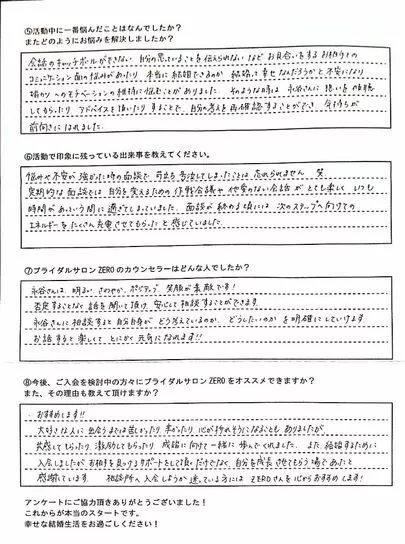 ⑤活動中に一番悩んだことはなんでしたか？
またどのようにお悩みを解決しましたか？
会話のキャッチボールができない 自分の思っていることを伝えられない など お見合いをするお相手との
コミュニケーション面の悩みがあったり 本当に結婚できるのか 結婚って幸せなんだろうか と不安になり
婚かつへのモチベーションの維持に悩むことがありました。そのような時は 永谷さんに 想いを傾聴
してもらったり アドバイスを頂いたりすることで、自分の考えを再確認することができ、気持ちが
前向きになれました。
⑥活動で印象に残っている出来事を教えてください。
悩みや不安が強かった時の面談で 号泣してしまったことは 忘れられません。笑
定期的な面談では 自分を変えるための作戦会議や 他愛のない会話が とても楽しく いつも
時間があっという間に過ぎてしまっていました。面談が終わる頃には 次のステップへ向けての
エネルギーをたくさん充電させてもらったと感じていました。
⑦ブライダルサロン ZERO のカウンセラーはどんな人でしたか？
永谷さんは、明るい、さわやか、ポジティブ、笑顔が素敵です！
否定することなく 話を聞いて頂け 安心して相談することができます。
永谷さんに相談すると 自分自身が どう考えているのか、どうしたいのか を明確にしていけます。
お話すると楽しくて とにかく元気になれます!!
⑧今後、ご入会を検討中の方々にブライダルサロン ZERO をオススメできますか？
また、その理由も教えて頂けますか？
おすすめします!!
大好きな人に出会うまでは苦しかったり 辛かったり 心が折れそうになることもありましたが、
共感してもらったり 激励してもらったり、成婚に向けて一緒に歩んでくれました。また、結婚するために
入会しましたが お相手を見つけるサポートをして頂くだけでなく、自分を成長させてもらう場であったと
感謝しています。 相談所へ入会しようか迷っている方には ZEROさんを心からおすすめします！
アンケートにご協力頂きありがとうございました！
これからが本当のスタートです。
幸せな結婚生活をお過ごしください！